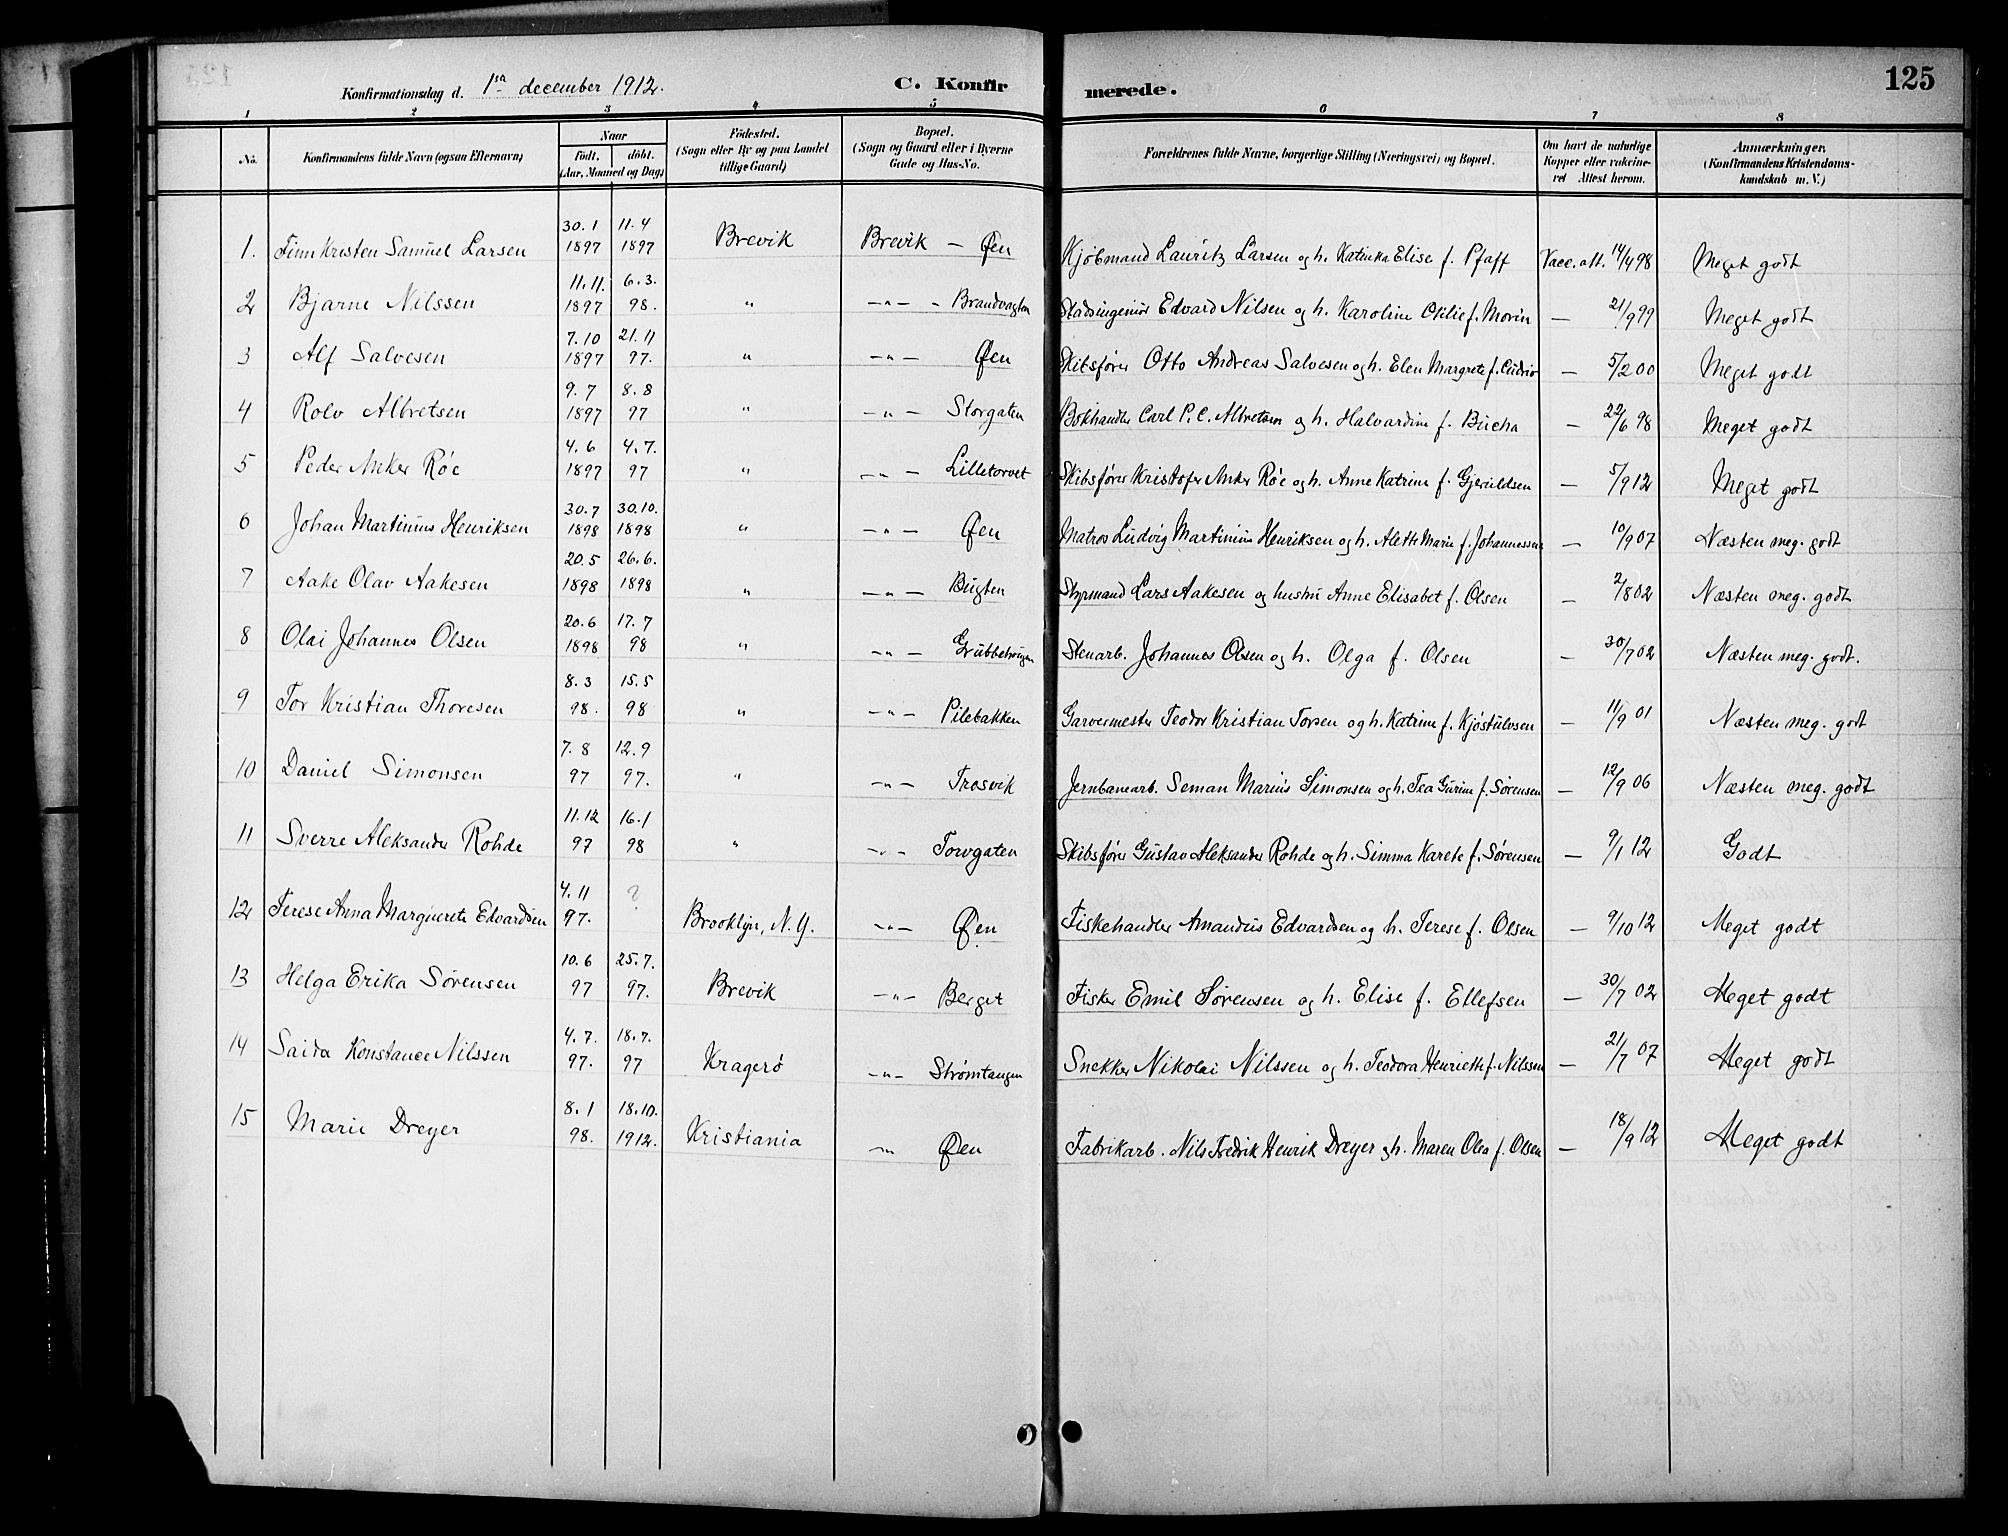 Konfirmationsdag d. 1ste december 1912. C. Konfirmerede. 125
1 2 3 4 5 6 7 8
No. Konfirmandens fulde Navn (ogsaa Efternavn) Naar født, døbt. (Aar, Maaned og Dag) Fødested. (Sogn eller By og paa Landet tillige Gaard) Bopæl. (Sogn og Gaard eller i Byerne Gade og Hus-No. Forældrenes fulde Navne, borgerlige Stilling (Næringsvei) og Bopæl. Om havt de naturlige Kopper eller vakcineret Attest herom. Anmærkninger, (Konfirmandens Kristendomskundskab m. V.)
1. Finn Kristen Samuel Larsen 30.1 1897 11.4 1897 Brevik Brevik — Øen Kjøbmand Lauritz Larsen og h. Katinka Elise f. Pfaff Vacc. att. 14/4 98 Meget godt
2 Bjarne Nilssen 11.11. 1897 6.3. 98. " —"— - Brandvagten Stadsingeniør Edvard Nilsen og h. Karoline Otilie f. Morin — 21/9 99 Meget godt
3 Alf Salvesen 7.10 1897 21.11 97. " —"— Øen Skibsfører Otto Andreas Salvesen og h. Elen Margrete f. — 5/2 00 Meget godt
4 Rolv Albretsen 9.7 1897 8.8 97 " —"— Storgaten Bokhandler Carl P. C. Albretsen og h. Halvardine f. Bucha — 22/6 98 Meget godt
5 Peder Anker Röe 4.6 1897 4.7. 97 " —"— Lilletorvet Skibsfører Kristofer Anker Röe og h. Anne Katrine f. Gjeruldsen — 5/9 12 Meget godt
6 Johan Martinius Henriksen 30.7 1898 30.10. 1898 " —"— Øen Matros Ludvig Martinius Henriksen og h. Alette Marie f. Johannessen — 10/9 07 Næsten meg. godt
7 Aake Olav Aakesen 20.5 1898 26.6. 1898 " —"— Bugten Styrmand Lars Aakesen og hustru Anne Elisabet f. Olsen — 2/8 02 Næsten meg. godt
8 Olai Johannes Olsen 20.6 1898 17.7 98 " —"— Grubbehaugen Stenarb. Johannes Olsen og h. Olga f. Olsen — 30/7 02 Næsten meg. godt.
9 Tor Kristian Thoresen 8.3 98. 15.5 98 " —"— Pilebakken Garvermester Teodor Kristian Torsen og h. Katrine f. Kjöstulvsen — 11/9 01 Næsten meg. godt
10 Daniel Simonsen 7.8 97 12.9 97. " —"— Trosvik Jernbanearb. Seman Marius Simonsen og h. Tea Gurine f. Sørensen — 12/9 06 Næsten meg. godt
11 Sverre Aleksander Rohde 11.12 97 16.1 98 " —"— Torvgaten Skibsfører Gustav Aleksander Rohde og h. Simma Karete f. Sørensen — 9/1 12 Godt
12 Terese Anna Marguerete Edvardsen 4.11 97. ? Brooklyn, N. Y. —"— Øen Fiskehandler Amandus Edvardsen og h. Terese f. Olsen — 9/10 12 Meget godt
13 Helga Erika Sørensen 10.6 97 25.7. 97. Brevik —"— Berget Fisker Emil Sørensen og h. Elise f. Ellefsen — 30/7 02 Meget godt
14 Saida Konstance Nilssen 4.7. 97. 18.7. 97 Kragerø —"— Strømtangen Snekker Nikolai Nilssen og h. Teodora Henriette f. Nilssen — 21/7 07 Meget godt
15 Marie Dreyer 8.1 98. 18.10. 1912. Kristiania —"— Øen Fabrikarb. Nils Fredrik Henrik Dreyer og h. Maren Olea f. Olsen — 18/9 12 Meget godt